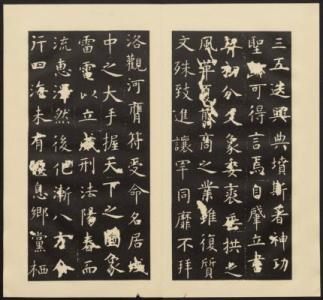 三五迭興典墳斯著神功
聖迹可得言焉自肇立書
契初分爻象委裘垂拱之
風革夏翦商之業雖復質
文殊致進讓罕同靡不拜
洛觀河膺符受命名居域
中之大手握天下之圖象
雷電以立威刑法陽春而
流惠澤然後化漸八方令
行四海未有偃息鄉黨栖